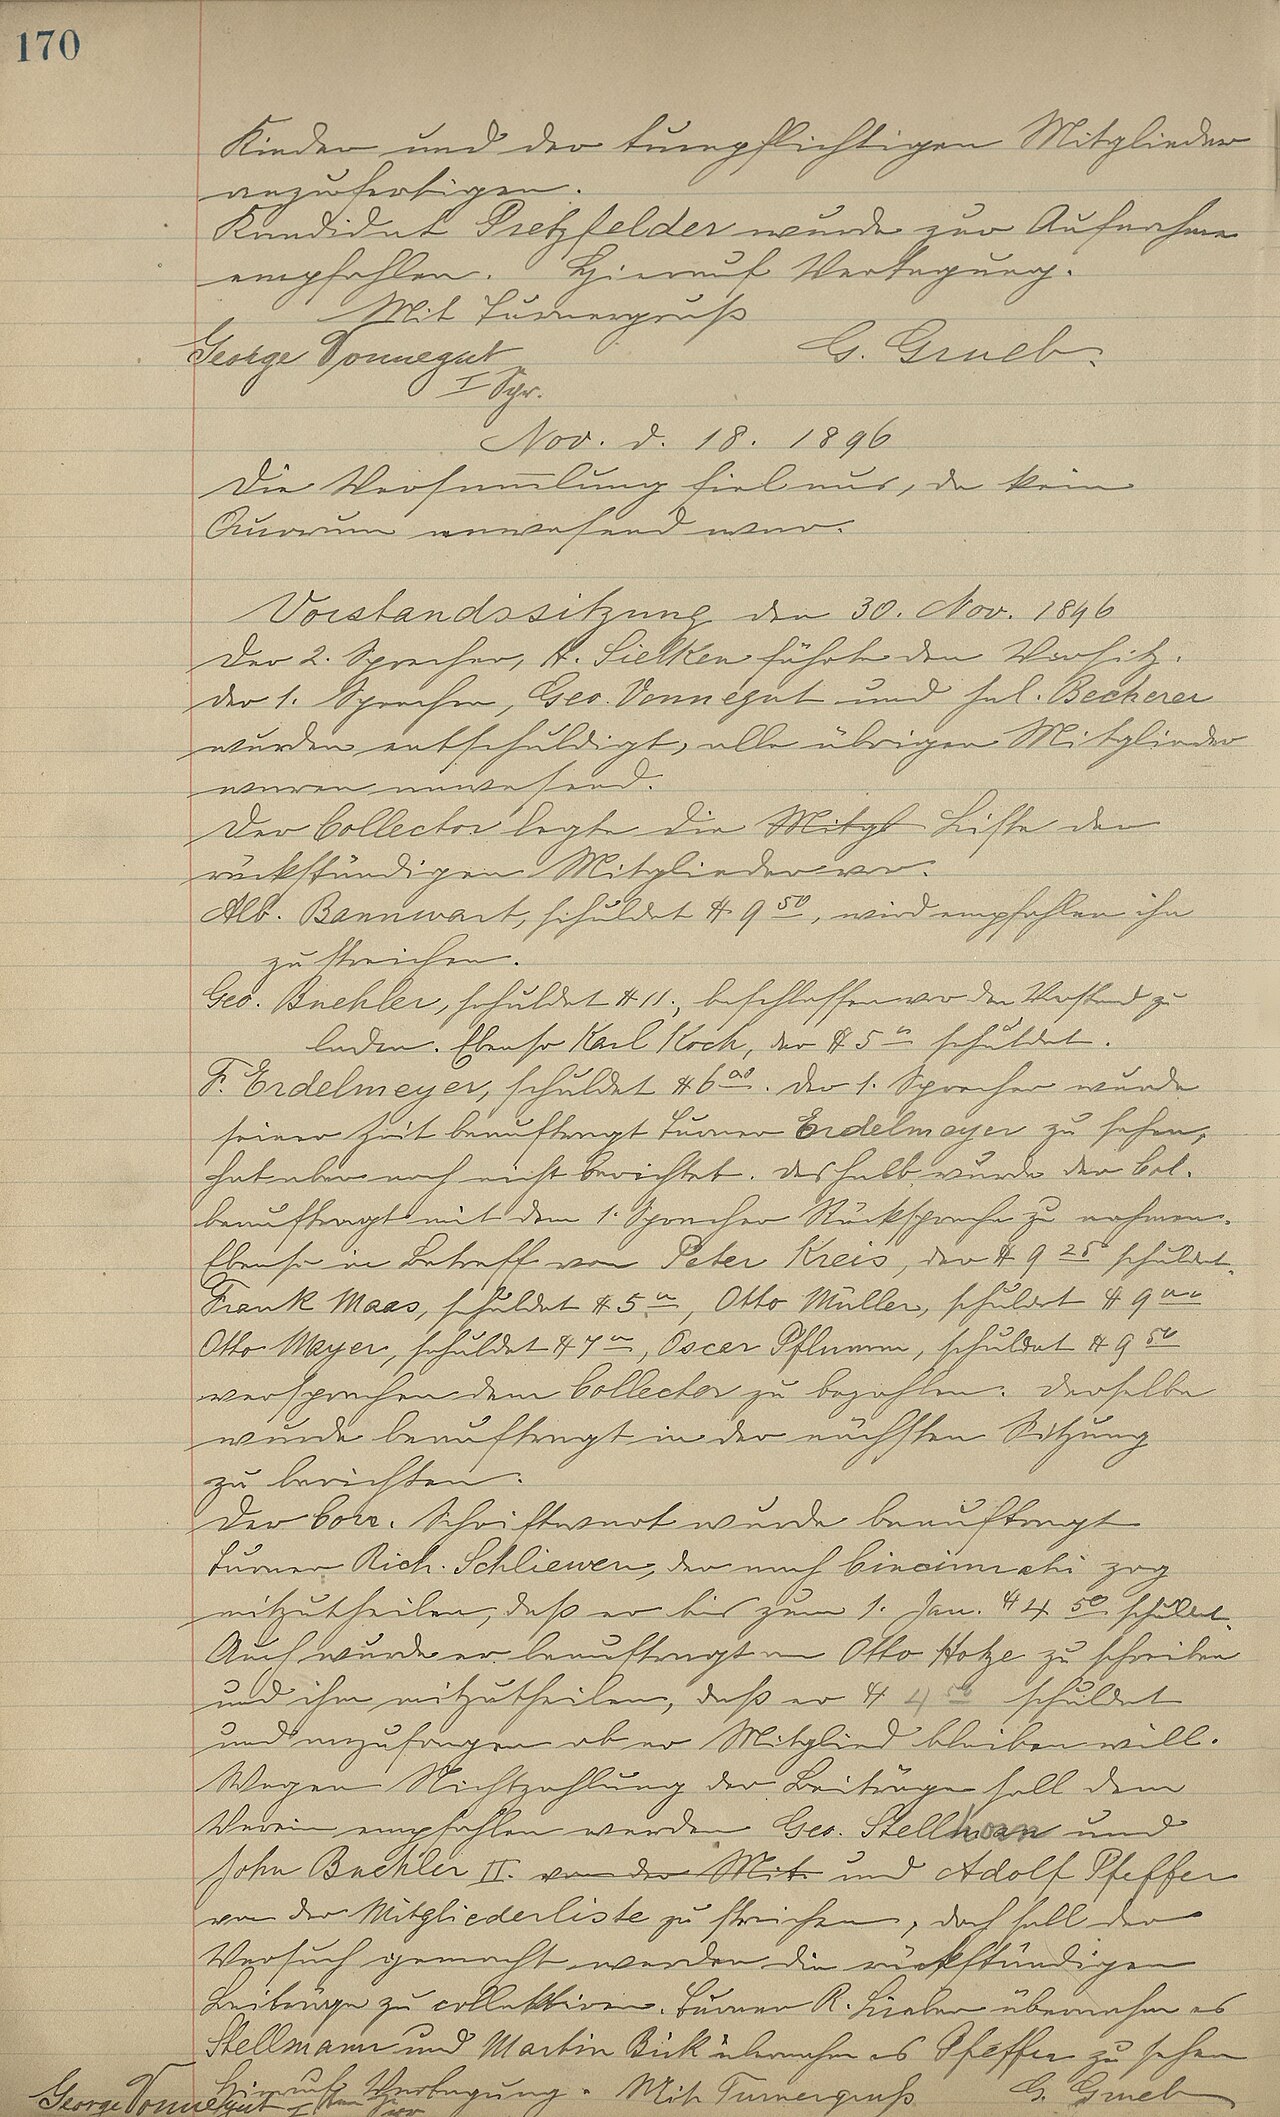 170
Kinder und der turnpflichtigen Mitglieder
anzufertigen.
Kandidat Pretzfelder wurde zur Aufnahme
empfohlen. Hierauf Vertagung.
Mit Turnergruß
George Vonnegut G. Grueb.
I Spr.
Nov. d. 18. 1896
Die Versam̅lung fiel aus, da kein
Quorum anwesend war.
Vorstandssitzung den 30. Nov. 1896
Der 2. Sprecher, H. Sielken führte den Vorsitz.
der 1. Sprecher, Geo. Vonnegut und Becherer
wurden entschuldigt, alle übrigen Mitglieder
waren anwesend.
Der Collector legte die Mitgl Liste der
rückständigen Mitglieder vor.
Alb. Bannwart, schuldet $ 9 50, wird empfohlen ihn
zu streichen.
Geo. Buehler, schuldet $ 11., beschlossen vor den Vorstand zu
laden. Ebenso Karl Koch, der $ 5 00 schuldet.
F. Erdelmeyer, schuldet $ 6 00. Der 1. Sprecher wurde
seiner Zeit beauftragt Turner Erdelmeyer zu sehen,
hat aber noch nicht berichtet. Deshalb wurde der Col.
beauftragt mit dem 1. Sprecher Rücksprache zu nehmen.
Ebenso in Betreff von Peter Kreis, der $ 9 25 schuldet.
Frank Maas, schuldet $ 5 00, Otto Müller, schuldet $ 9 00
Otto Mayer, schuldet $ 7 00, Oscar Pflumm, schuldet $ 9 50
versprachen dem Collector zu bezahlen. Derselbe
wurde beauftragt in der nächsten Sitzung
zu berichten.
Der Corr. Schriftwart wurde beauftragt
Turner Rich. Schliewen, der nach Cincinnati zog
mitzutheilen, daß er bis zum 1. Jan. $ 4 50 schuldet.
Auch wurde er beauftragt an Otto Hotze zu schreiben
und ihm mitzutheilen, daß er $ 4 50 schuldet
und anzufragen ob er Mitglied bleiben will.
Wegen Nichtzahlung der Beiträge soll dem
Verein empfohlen werden Geo. Stellhorn und
John Buehler II. von der Mit. und Adolf Pfeffer
von der Mitgliederliste zu streichen, doch soll der
Versuch gemacht werden die rückständigen
Beiträge zu collektiren. Turner R. Lieber übernahm es
Stellmann und Martin Bick übernahm es Pfeffer zu sehen
Hierauf Vertagung. Mit Turnergruß G. Grueb
George Vonnegut